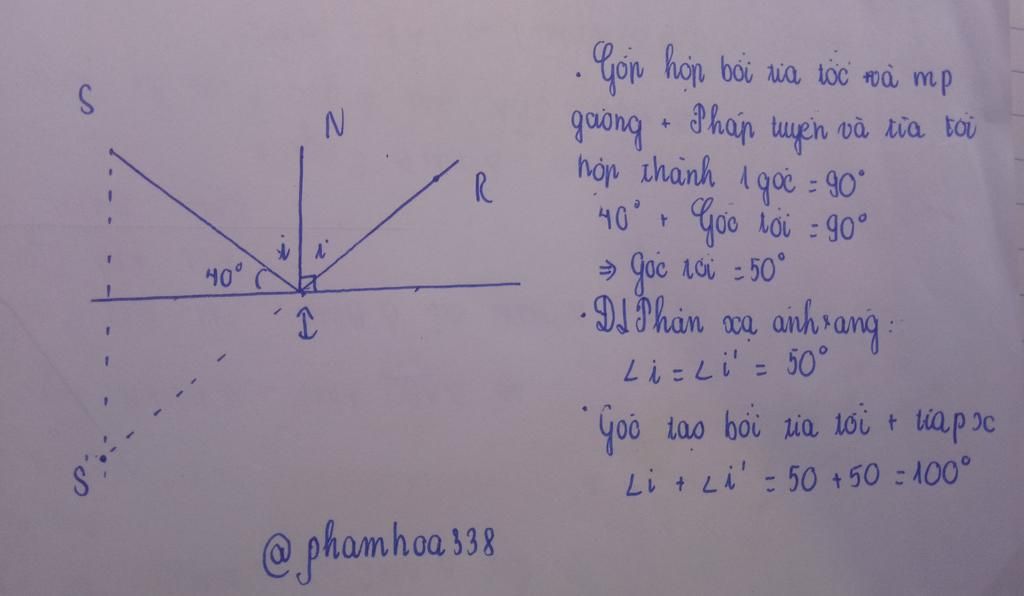 S
N
R
i i
40°
I
S'
. Góp hợp bởi tia tốc và mp
gương + Pháp tuyến và tia tới
hợp thành 1 góc = 90°
40° + Góc tới = 90°
⇒ Góc tới = 50°
. ĐL Phản xạ ánh sáng:
∠i = ∠i' = 50°
. Góc tạo bởi tia tới + tia px
∠i + ∠i' = 50 + 50 = 100°
@phamhoa338